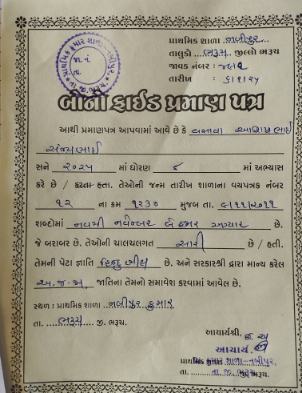 પ્રાથમિક શાળા નબીપુર
તાલુકો ભરૂચ જીલ્લો ભરૂચ
જાવક નંબર :
તારીખ :
બોનોફાઈડ પ્રમાણ પત્ર
આથી પ્રમાણપત્ર આપવામાં આવે છે કે વસાવા
સંજયભાઈ
સને ૨૦૨૫ માં ધોરણ ૮ માં અભ્યાસ
કરે છે / કરતા હતા. તેઓની જન્મ તારીખ શાળાના વયપત્રક નંબર
૧૨ ના ક્રમ ૧૨૩૦ મુજબ તા. ૯/૧૧/૨૦૧૧
શબ્દોમાં નવમી નવેમ્બર બે હજાર અગ્યાર છે.
જે બરાબર છે. તેઓની ચાલચલગત સારી છે / હતી.
તેમની પેટા જ્ઞાતિ હિન્દુ ભીલ છે. અને સરકારશ્રી દ્રારા માન્ય કરેલ
અ.જ.જા. જાતિના તેમનો સમાવેશ કરવામાં આવેલ છે.
સ્થળ : પ્રાથમિક શાળા નબીપુર કુમાર
તા. ભરૂચ જી. ભરૂચ.
આચાર્યશ્રી,
આચાર્ય
પ્રાથમિક કુમાર શાળા-નબીપુર,
તા. જી. ભરૂચ